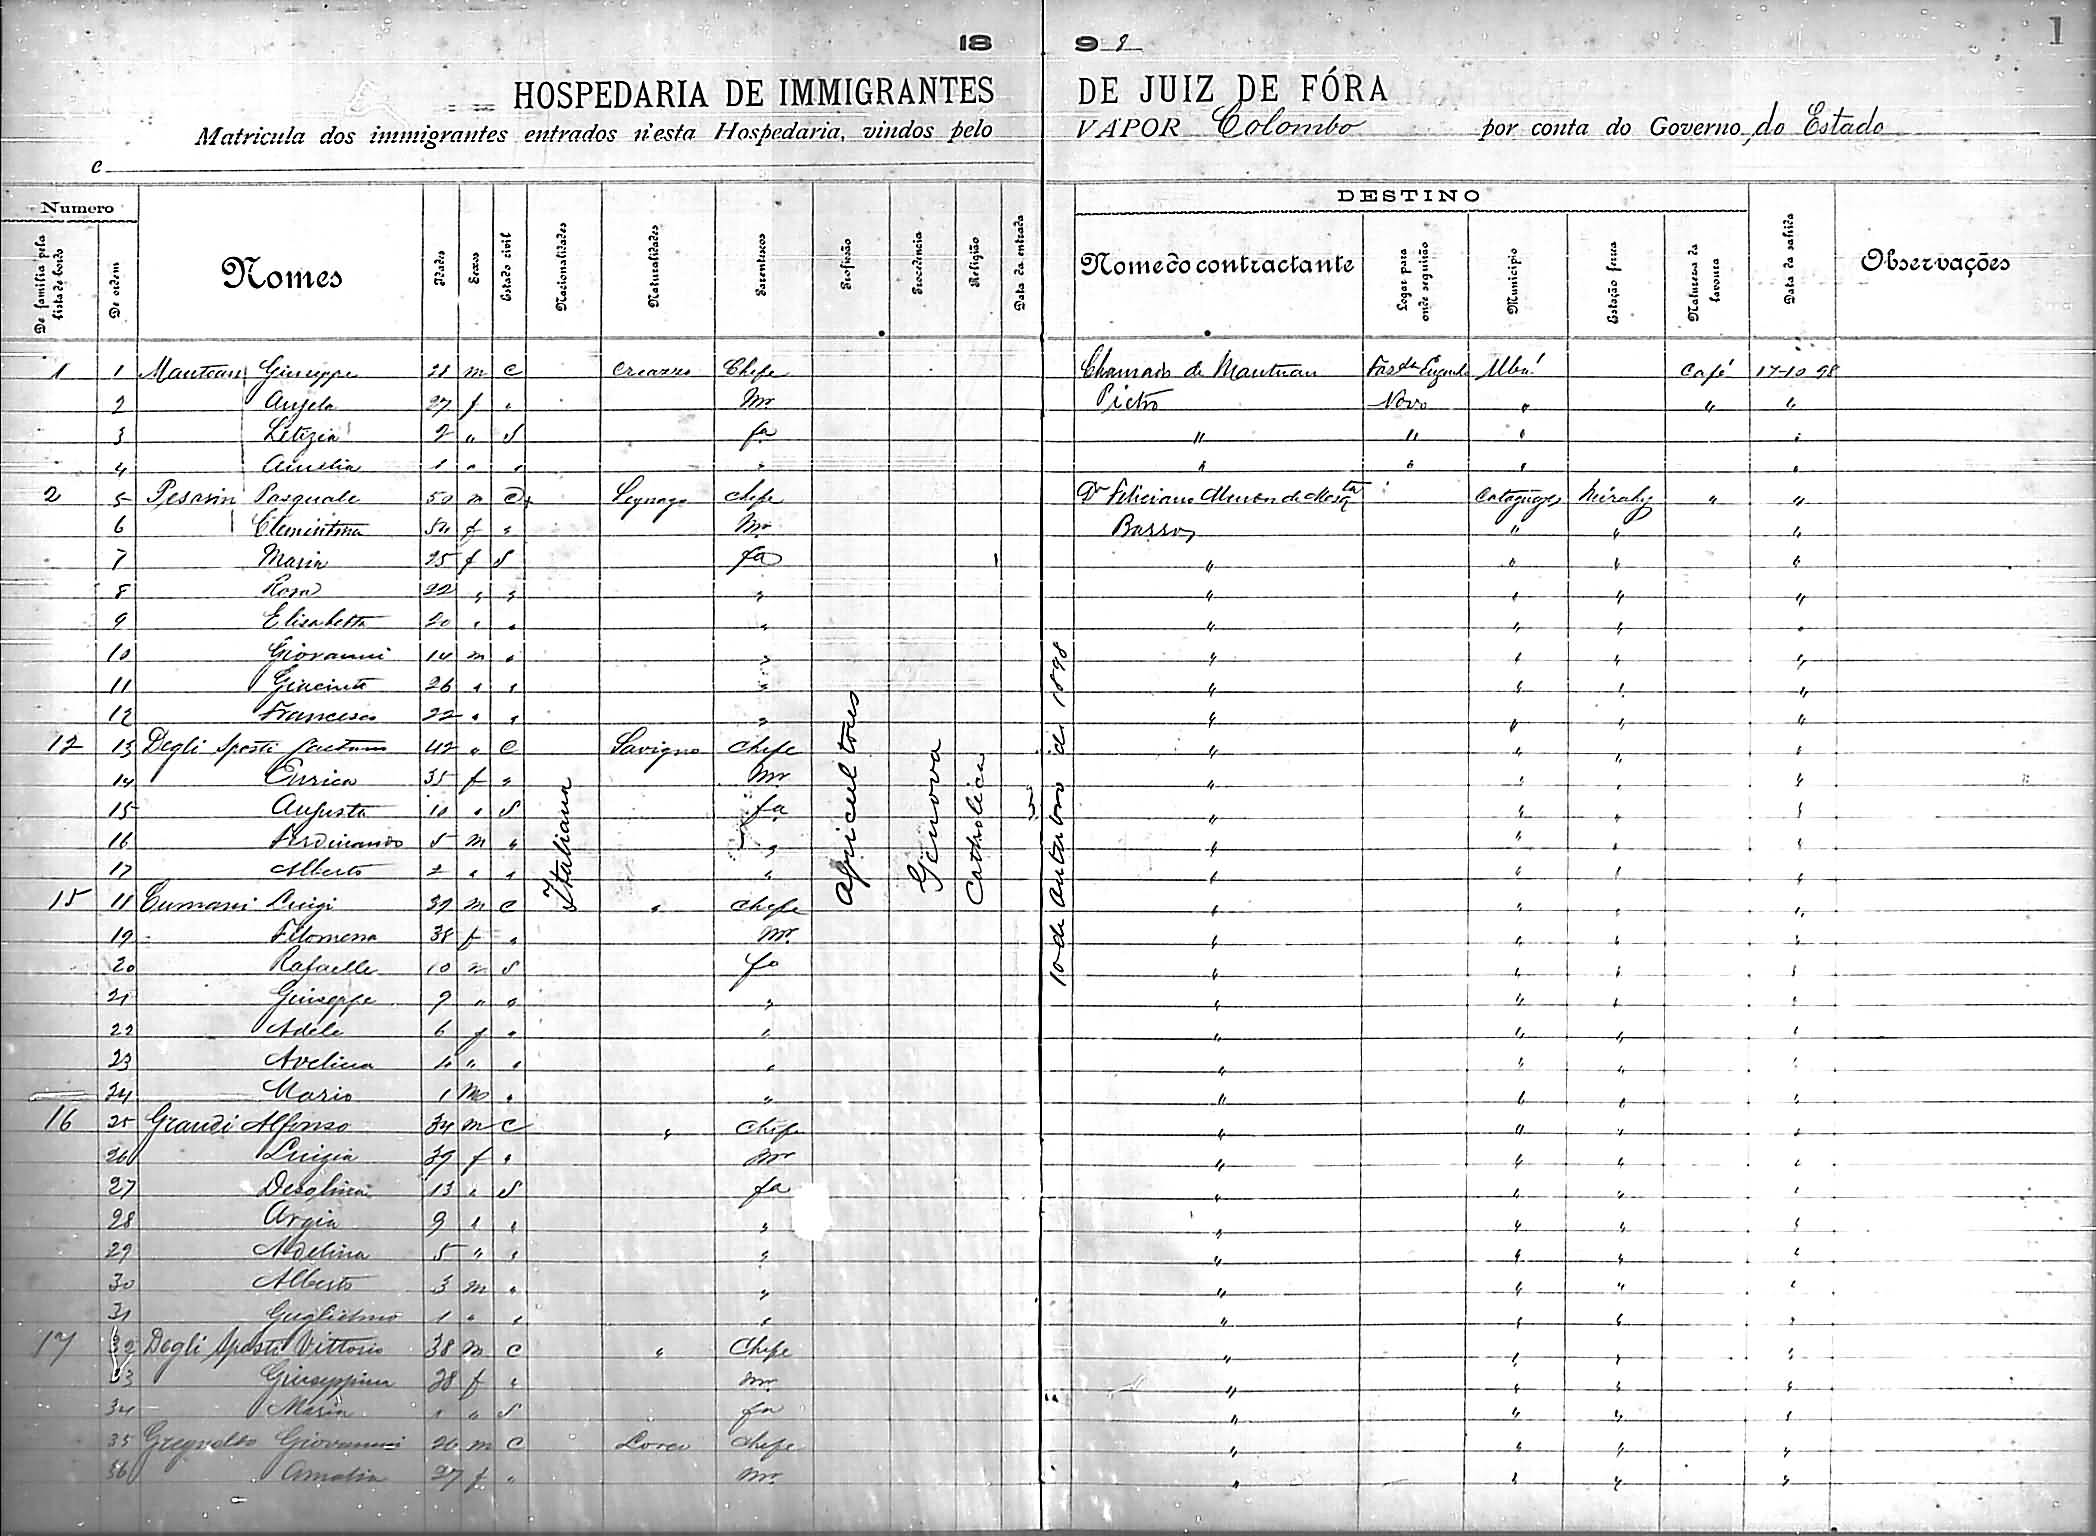 1
18 98
HOSPEDARIA DE IMMIGRANTES DE JUIZ DE FÓRA
Matricula dos immigrantes entrados n'esta Hospedaria, vindos pelo VAPOR Colombo por conta do Governo, do Estado
e
Numero DESTINO
De familia pela lista de bordo De ordem Nomes Idades Sexos Estado civil Nacionalidades Naturalidades Parentescos Profissão Procedencia Religião Data da entrada Nome do contractante Logar para onde seguirão Municipio Estação ferrea Natureza da lavoura Data da sahida Observações
1 1 Mantoan Giuseppe 28 m C Creazzo Chefe Chamado de Mantuan Ubá Café 17-10 98
2 Angela 27 f " Mr Pietro Novo " " "
3 Letizia 2 " S fa " " " "
4 1 " " " " " " "
2 5 Pesarin Pasquale 50 m C Legnago chefe Dr Feliciano Cataguazes Mirahy " "
6 Clementina 54 f " Mr Barros " " "
7 Maria 25 f S fa " " " "
8 Rosa 22 " " " " " " "
9 Elisabetta 20 " " " " " " "
10 Giovanni 14 m " " " " " "
11 Giacinto 26 " " " " " " "
12 Francesco 22 " " " " " " "
12 13 Degli Sposti Gaetano 42 " C Savigno chefe " " " "
14 Enrica 35 f " Mr " " " "
15 Augusta 10 " S fa " " " "
16 Ferdinando 5 m " " " " " "
17 Alberto 2 " " " " " " "
Italiana
Agricultores
Genova
Catholica
10 de Outubro de 1898
15 11 Cumani Luigi 39 m C " chefe " " " "
19 Filomena 38 f " Mr " " " "
20 Rafaelle 10 m S fo " " " "
21 Giuseppe 9 " " " " " " "
22 Adele 6 f " " " " " "
23 Avelina 4 " " " " " " "
24 Mario 1 m " " " " " "
16 25 Grandi Alfonso 34 m C " Chefe " " " "
26 Luigia 39 f " Mr " " " "
27 13 " S fa " " " "
28 Argia 9 " " " " " " "
29 Adelina 5 " " " " " " "
30 Alberto 3 m " " " " " "
31 Guglielmo 1 " " " " " " "
17 32 Degli Sposti Vittorio 38 m C " Chefe " " " "
33 Giuseppina 28 f " Mr " " " "
34 Maria 1 " S fa " " " "
35 Gregnoldo Giovanni 26 m C Loreo chefe " " " "
36 Amalia 27 f " Mr " " " "